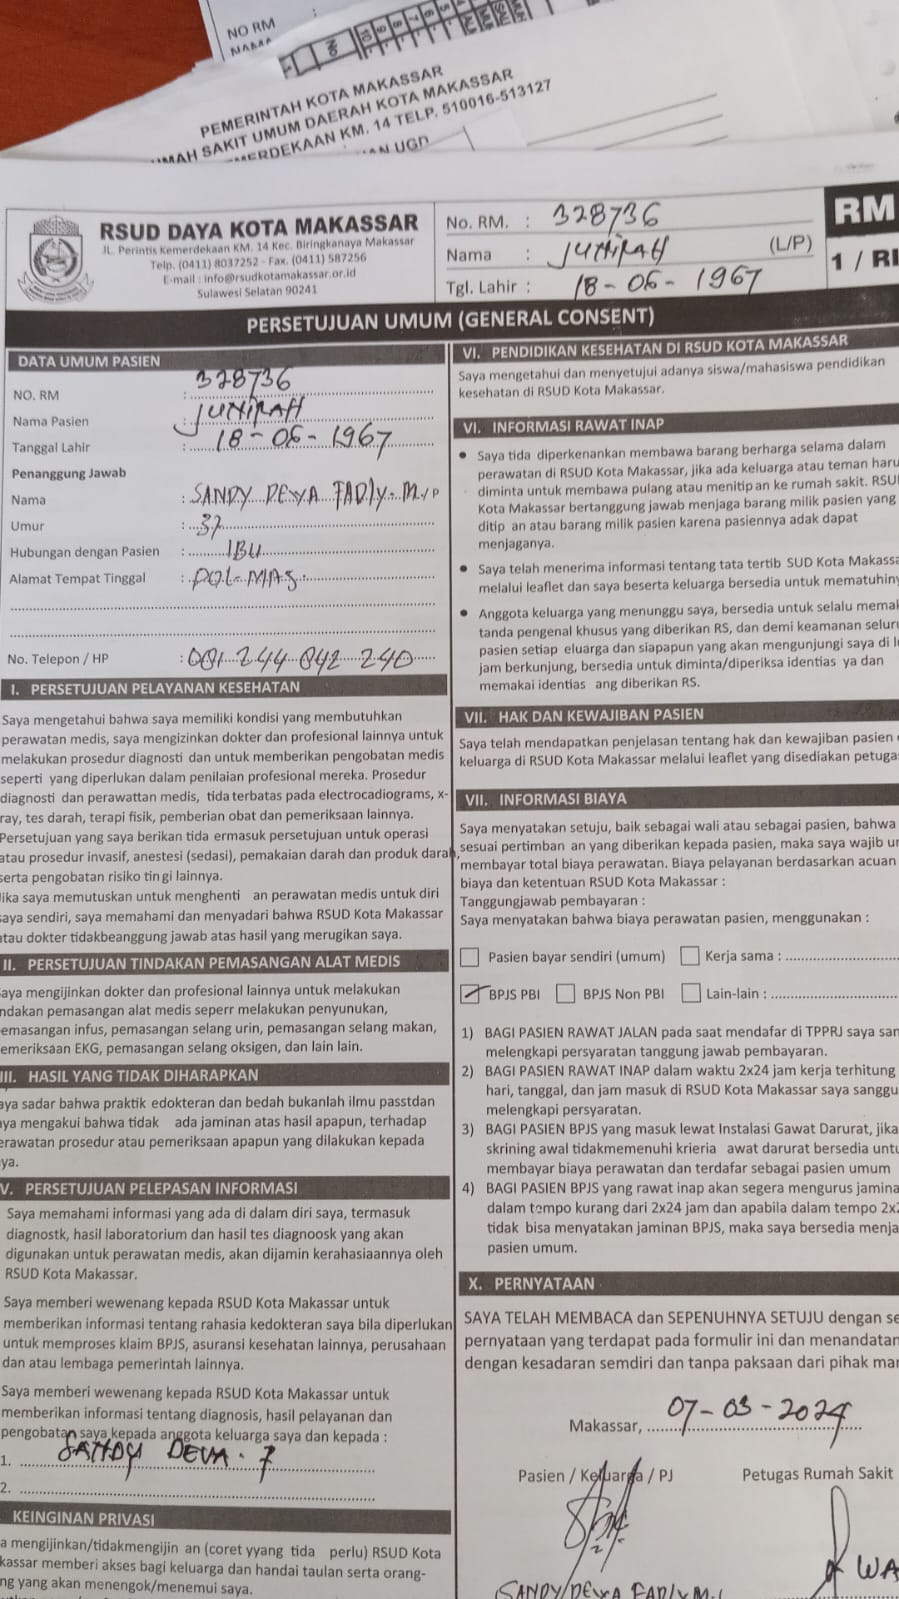 NO RM :
NAMA
PEMERINTAH KOTA MAKASSAR
UMAH SAKIT UMUM DAERAH KOTA MAKASSAR
MERDEKAAN KM. 14 TELP. 510016-513127
UGD
RSUD DAYA KOTA MAKASSAR
JL. Perintis Kemerdekaan KM. 14 Kec. Biringkanaya Makassar
Telp. (0411) 8037252 - Fax. (0411) 587256
E-mail : info@rsudkotamakassar.or.id
Sulawesi Selatan 90241
No. RM. : 328736
Nama : JUNIRAH (L/P)
Tgl. Lahir : 18-06-1967
RM
1 / RI
PERSETUJUAN UMUM (GENERAL CONSENT)
DATA UMUM PASIEN
NO. RM : 328736
Nama Pasien : JUNIRAH
Tanggal Lahir : 18-06-1967
Penanggung Jawab
Nama : SANDY DEWA FADLY. M.IP
Umur : 37
Hubungan dengan Pasien : IBU
Alamat Tempat Tinggal : POL-MAS
No. Telepon / HP : 081 244 042 240
I. PERSETUJUAN PELAYANAN KESEHATAN
Saya mengetahui bahwa saya memiliki kondisi yang membutuhkan
perawatan medis, saya mengizinkan dokter dan profesional lainnya untuk
melakukan prosedur diagnosti dan untuk memberikan pengobatan medis
seperti yang diperlukan dalam penilaian profesional mereka. Prosedur
diagnosti dan perawattan medis, tida terbatas pada electrocadiograms, x-
ray, tes darah, terapi fisik, pemberian obat dan pemeriksaan lainnya.
Persetujuan yang saya berikan tida ermasuk persetujuan untuk operasi
atau prosedur invasif, anestesi (sedasi), pemakaian darah dan produk darah,
serta pengobatan risiko tin gi lainnya.
Jika saya memutuskan untuk menghenti an perawatan medis untuk diri
saya sendiri, saya memahami dan menyadari bahwa RSUD Kota Makassar
atau dokter tidakbeanggung jawab atas hasil yang merugikan saya.
II. PERSETUJUAN TINDAKAN PEMASANGAN ALAT MEDIS
Saya mengijinkan dokter dan profesional lainnya untuk melakukan
ndakan pemasangan alat medis seperr melakukan penyunukan,
emasangan infus, pemasangan selang urin, pemasangan selang makan,
emeriksaan EKG, pemasangan selang oksigen, dan lain lain.
III. HASIL YANG TIDAK DIHARAPKAN
aya sadar bahwa praktik edokteran dan bedah bukanlah ilmu passtdan
aya mengakui bahwa tidak ada jaminan atas hasil apapun, terhadap
erawatan prosedur atau pemeriksaan apapun yang dilakukan kepada
ya.
V. PERSETUJUAN PELEPASAN INFORMASI
Saya memahami informasi yang ada di dalam diri saya, termasuk
diagnostk, hasil laboratorium dan hasil tes diagnoosk yang akan
digunakan untuk perawatan medis, akan dijamin kerahasiaannya oleh
RSUD Kota Makassar.
Saya memberi wewenang kepada RSUD Kota Makassar untuk
memberikan informasi tentang rahasia kedokteran saya bila diperlukan
untuk memproses klaim BPJS, asuransi kesehatan lainnya, perusahaan
dan atau lembaga pemerintah lainnya.
Saya memberi wewenang kepada RSUD Kota Makassar untuk
memberikan informasi tentang diagnosis, hasil pelayanan dan
pengobatan saya kepada anggota keluarga saya dan kepada :
1. SANDY DEWA . F
2.
KEINGINAN PRIVASI
a mengijinkan/tidakmengijin an (coret yyang tida perlu) RSUD Kota
kassar memberi akses bagi keluarga dan handai taulan serta orang-
ng yang akan menengok/menemui saya.
VI. PENDIDIKAN KESEHATAN DI RSUD KOTA MAKASSAR
Saya mengetahui dan menyetujui adanya siswa/mahasiswa pendidikan
kesehatan di RSUD Kota Makassar.
VI. INFORMASI RAWAT INAP
• Saya tida diperkenankan membawa barang berharga selama dalam
perawatan di RSUD Kota Makassar, jika ada keluarga atau teman haru
diminta untuk membawa pulang atau menitip an ke rumah sakit. RSU
Kota Makassar bertanggung jawab menjaga barang milik pasien yang
ditip an atau barang milik pasien karena pasiennya adak dapat
menjaganya.
• Saya telah menerima informasi tentang tata tertib SUD Kota Makassa
melalui leaflet dan saya beserta keluarga bersedia untuk mematuhiny
• Anggota keluarga yang menunggu saya, bersedia untuk selalu memak
tanda pengenal khusus yang diberikan RS, dan demi keamanan seluru
pasien setiap eluarga dan siapapun yang akan mengunjungi saya di lu
jam berkunjung, bersedia untuk diminta/diperiksa identias ya dan
memakai identias ang diberikan RS.
VII. HAK DAN KEWAJIBAN PASIEN
Saya telah mendapatkan penjelasan tentang hak dan kewajiban pasien
keluarga di RSUD Kota Makassar melalui leaflet yang disediakan petuga
VII. INFORMASI BIAYA
Saya menyatakan setuju, baik sebagai wali atau sebagai pasien, bahwa
sesuai pertimban an yang diberikan kepada pasien, maka saya wajib un
membayar total biaya perawatan. Biaya pelayanan berdasarkan acuan
biaya dan ketentuan RSUD Kota Makassar :
Tanggungjawab pembayaran :
Saya menyatakan bahwa biaya perawatan pasien, menggunakan :
Pasien bayar sendiri (umum) Kerja sama :
BPJS PBI BPJS Non PBI Lain-lain :
1) BAGI PASIEN RAWAT JALAN pada saat mendafar di TPPRJ saya san
melengkapi persyaratan tanggung jawab pembayaran.
2) BAGI PASIEN RAWAT INAP dalam waktu 2x24 jam kerja terhitung
hari, tanggal, dan jam masuk di RSUD Kota Makassar saya sanggu
melengkapi persyaratan.
3) BAGI PASIEN BPJS yang masuk lewat Instalasi Gawat Darurat, jika
skrining awal tidakmemenuhi krieria awat darurat bersedia untu
membayar biaya perawatan dan terdafar sebagai pasien umum
4) BAGI PASIEN BPJS yang rawat inap akan segera mengurus jamina
dalam tempo kurang dari 2x24 jam dan apabila dalam tempo 2x2
tidak bisa menyatakan jaminan BPJS, maka saya bersedia menja
pasien umum.
X. PERNYATAAN
SAYA TELAH MEMBACA dan SEPENUHNYA SETUJU dengan se
pernyataan yang terdapat pada formulir ini dan menandatan
dengan kesadaran semdiri dan tanpa paksaan dari pihak man
Makassar, 07-03-2024
Pasien / Keluarga / PJ Petugas Rumah Sakit
WA
SANDY DEWA FADLY M.I